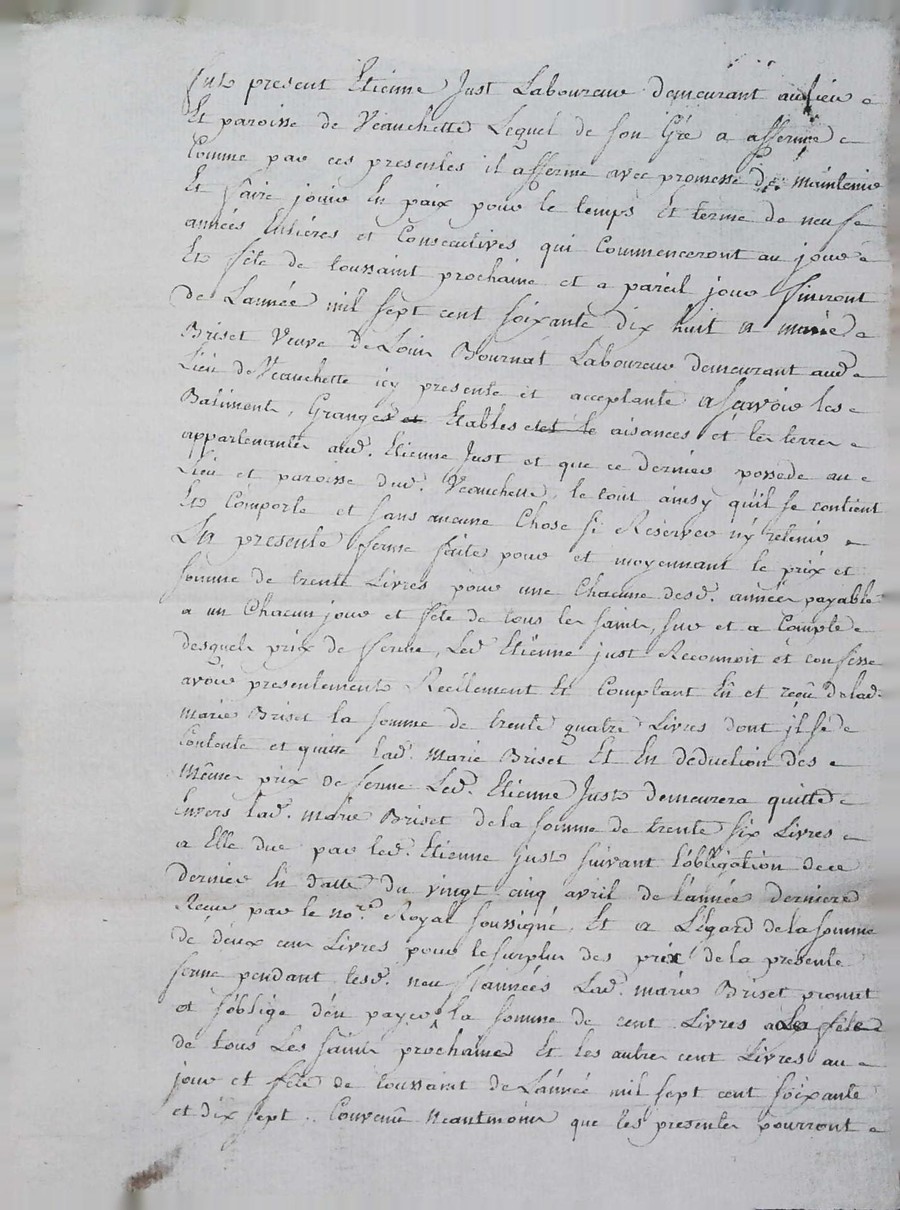 fut present Etienne Just Laboureur demeurant au lieu
Et paroisse de Veauchette Lequel de son Gré a affermé
Comme par ces presentes il afferme avec promesse de maintenir
Et faire jouir En paix pour le temps Et terme de neuf
années Entières et Consecutives qui Commenceront au jour
Et fête de toussaint prochaine et a pareil jour finiront
de Lannée mil sept cent soixante dix huit a marie
Briset Veuve de Loüis Bournat Laboureur demeurant aud.
Lieu de Veauchette icy presente et acceptante a sçavoir les
Batiments, Granges et Etables et et le aisances et les terres
appartenantes aud. Etienne Just et que ce dernier possede au
Lieu et paroisse dud. Veauchette, le tout ainsy qu'il se contient
Et Comporte et sans aucune Chose s'i Reserver n'y retenir
La presente ferme faite pour et moyennant le prix et
somme de trente Livres pour une Chacune desd. années payable
a un Chacun jour et fête de tous les saints, sur et a Compte
desquels prix de ferme, Led. Etienne just Reconnoit et confesse
avoir presentement Reellement Et Comptant Eû et reçû de lad.
marie Briset la somme de trente quatre Livres dont il se
Contente et quitte lad. Marie Briset Et En deduction des
Mêmes prix de ferme Led. Etienne Just demeurera quitte
Envers lad. marie Briset de la somme de trente six Livres
a Elle due par led. Etienne just suivant l'obligation de ce
dernier En datte du vingt cinq avril de l'année derniere
Reçue par le no.re Royal soussigné, Et a L'égard de la somme
de deux cens Livres pour le surplus des prix de la presente
ferme pendant lesd. neuf années Lad. marie Briset promet
et s'oblige d'en payer la somme de cent Livres a La fête
de tous Les saints prochaine Et les autres cent Livres au
jour et fête de toussaint de L'année mil sept cent soixante
et dix sept.. Convenu Neantmoins que les presentes pourront